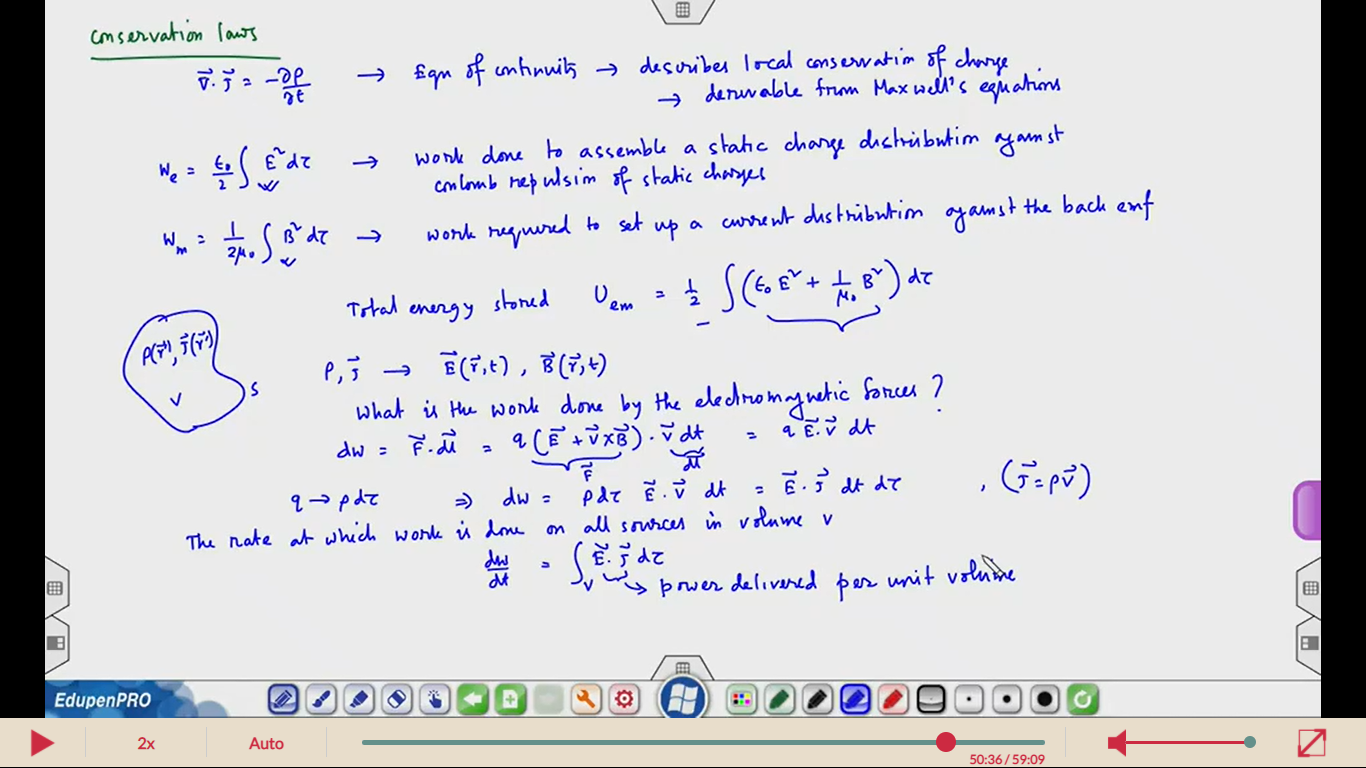 conservation laws
∇⃗·J⃗ = -∂ρ/∂t → Eqn of continuity → describes local conservation of charge
→ derivable from Maxwell's equations
We = ε₀/2 ∫ E² dτ → work done to assemble a static charge distribution against
coulomb repulsion of static charges
Wm = 1/2μ₀ ∫ B² dτ → work required to set up a current distribution against the back emf
Total energy stored Uem = 1/2 ∫ (ε₀ E² + 1/μ₀ B²) dτ
ρ(r⃗'), J⃗(r⃗')
V
S
ρ, J⃗ → E⃗(r⃗,t), B⃗(r⃗,t)
What is the work done by the electromagnetic forces?
dw = F⃗·dl⃗ = q(E⃗ + v⃗×B⃗)·v⃗ dt = q E⃗·v⃗ dt
F⃗ dl⃗
q → ρdτ ⇒ dw = ρdτ E⃗·v⃗ dt = E⃗·J⃗ dt dτ , (J⃗=ρv⃗)
The rate at which work is done on all sources in volume v
dw/dt = ∫v E⃗·J⃗ dτ
→ power delivered per unit volume
EdupenPRO
2x
Auto
50:36 / 59:09